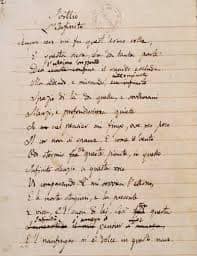 Idillio
L'Infinito
Sempre caro mi fu quest'ermo colle,
E questa siepe, che da tanta parte
ultimo orizzonte
il guardo esclude.
Ma sedendo e mirando,
Spazio di là da quella, e sovrumani
Silenzi, e profondissima quiete
Io nel pensier mi fingo, ove per poco
Il cor non si spaura. E come il vento
Odo stormir fra queste piante, io quello
Infinito silenzio a questa voce
Vo comparando: e mi sovvien l'eterno,
E le morte stagioni, e la presente
E viva, e 'l suon di lei. Così fra questa
il mio pensier
E 'l naufragar m'è dolce in questo mare.